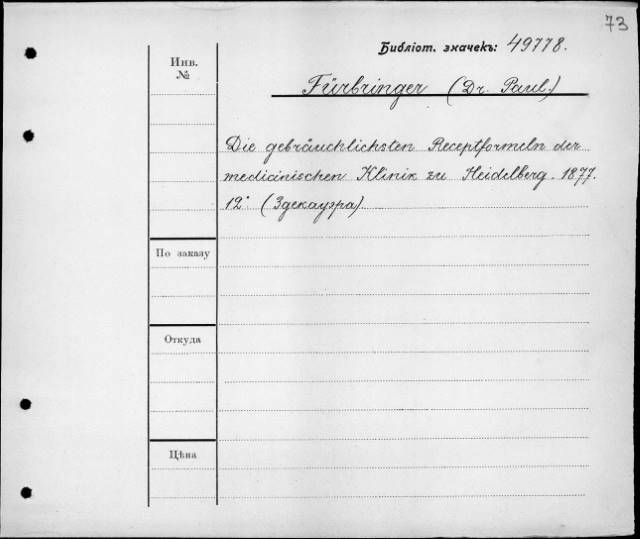 73
Библіот. значекъ: 49778.
Инв.
№
Fürbringer (Dr. Paul.)
Die gebräuchlichsten Receptformeln der
medicinischen Klinik zu Heidelberg. 1877.
12° (Здекауэра)
По заказу
Откуда
Цѣна